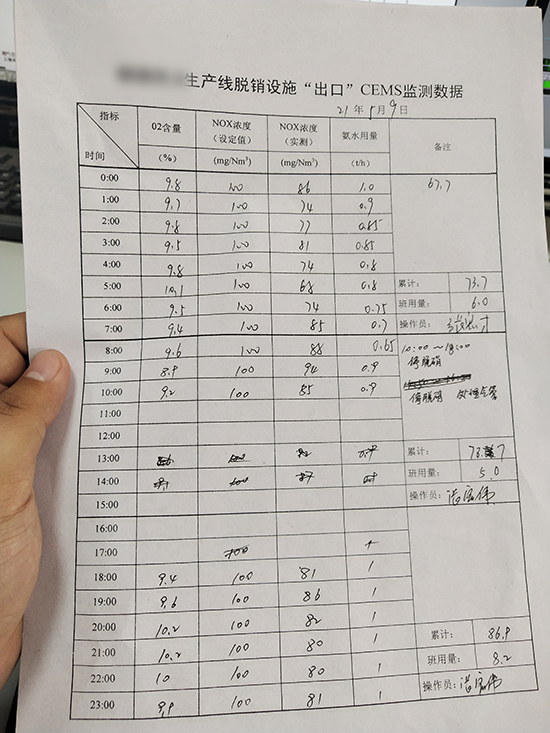 生产线脱销设施“出口”CEMS监测数据
21年5月9日
指标 时间 02含量 (%) NOX浓度 (设定值) (mg/Nm³) NOX浓度 (实测) (mg/Nm³) 氨水用量 (t/h) 备注
0:00 9.8 100 86 1.0 67.7
1:00 9.7 100 74 0.9
2:00 9.8 100 77 0.85
3:00 9.5 100 81 0.85
4:00 9.8 100 74 0.8
5:00 10.1 100 68 0.8 累计: 73.7
6:00 9.5 100 74 0.75 班用量: 6.0
7:00 9.4 100 85 0.7 操作员:
8:00 9.6 100 88 0.65 10:00~18:00
停脱硝
9:00 8.9 100 94 0.9
10:00 9.2 100 85 0.9 停脱硝
11:00
12:00
13:00 累计:
14:00 班用量: 5.0
15:00 操作员:
16:00
17:00 100
18:00 9.4 100 81 1
19:00 9.6 100 86 1
20:00 10.2 100 82 1 累计: 86.9
21:00 10.2 100 80 1 班用量: 8.2
22:00 10 100 80 1 操作员:
23:00 9.9 100 81 1